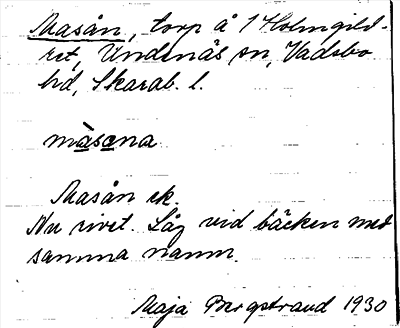 Masån, torp å 1 Holmgild-
ret, Undenäs sn, Vadsbo
hd, Skarab. l.
màsena
Masån ek.
Nu rivet. Låg vid bäcken med
samma namn.
Maja Bergstrand 1930